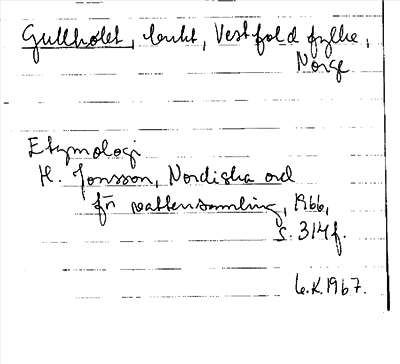 Gullholet, bukt, Vestfold fylke,
Norge
Etymologi
H. Jonsson, Nordiska ord
för vattensamling, 1966,
s. 314f.
1967.